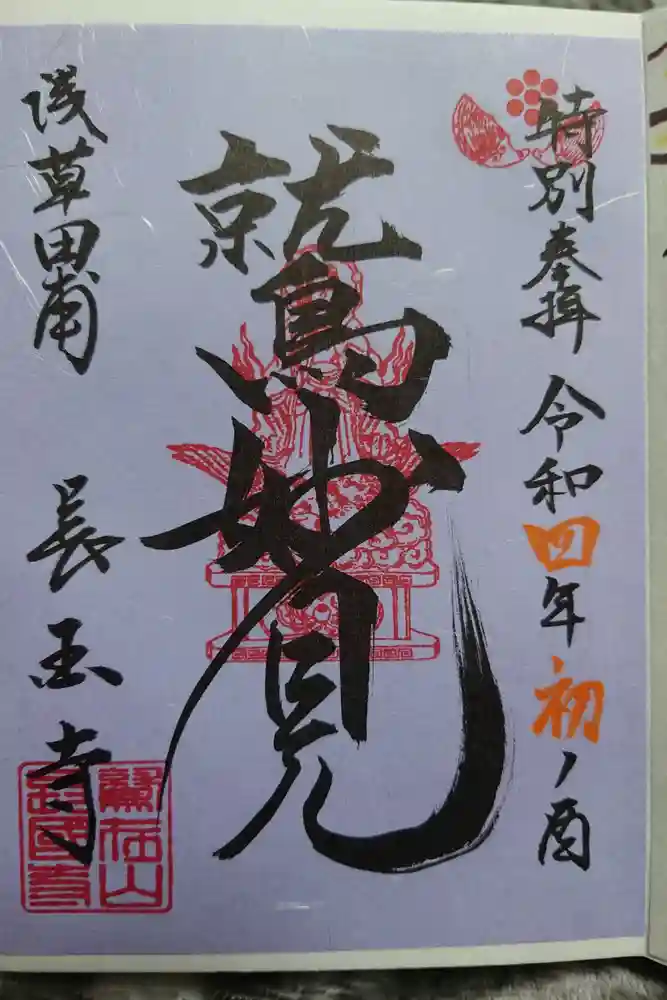 特別奉拝 令和四年初ノ酉
鷲妙見
浅草田甫 長国寺
鷲在山
長國寺